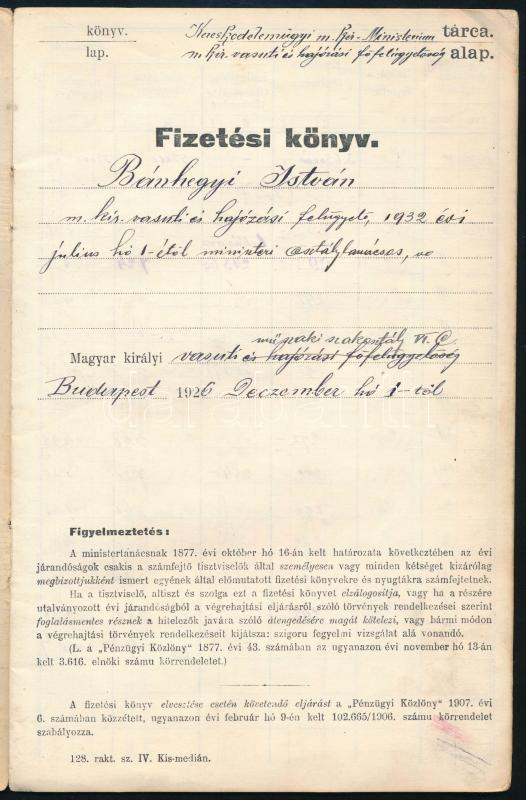 könyv. Kereskedelemügyi m. kir. Ministerium tárca.
lap. m. kir. vasuti és hajózási főfelügyelőség alap.
Fizetési könyv.
Bánhegyi István
m. kir. vasuti és hajózási felügyelő, 1932 évi
július hó 1-étől miniszteri osztálytanácsos,
műszaki szakosztály VI. C
Magyar királyi vasuti és hajózási főfelügyelőség
Budapest 1926 Deczember hó 1-től
darabanth
Figyelmeztetés:
A ministertanácsnak 1877. évi október hó 16-án kelt határozata következtében az évi
járandóságok csakis a számfejtő tisztviselők által személyesen vagy minden kétséget kizárólag
megbizottjukként ismert egyének által előmutatott fizetési könyvekre és nyugtákra számfejtetnek.
Ha a tisztviselő, altiszt és szolga ezt a fizetési könyvet elzálogositja, vagy ha a részére
utalványozott évi járandóságból a végrehajtási eljárásról szóló törvények rendelkezései szerint
foglalásmentes résznek a hitelezők javára szóló átengedésére magát kötelezi, vagy bármi módon
a végrehajtási törvények rendelkezéseit kijátsza: szigoru fegyelmi vizsgálat alá vonandó.
(L. a „Pénzügyi Közlöny" 1877. évi 43. számában az ugyanazon évi november hó 13-án
kelt 3.616. elnöki számu körrendeletet.)
A fizetési könyv elvesztése esetén követendő eljárást a „Pénzügyi Közlöny" 1907. évi
6. számában közzétett, ugyanazon évi február hó 9-én kelt 102.665/1906. számu körrendelet
szabályozza.
128. rakt. sz. IV. Kis-medián.